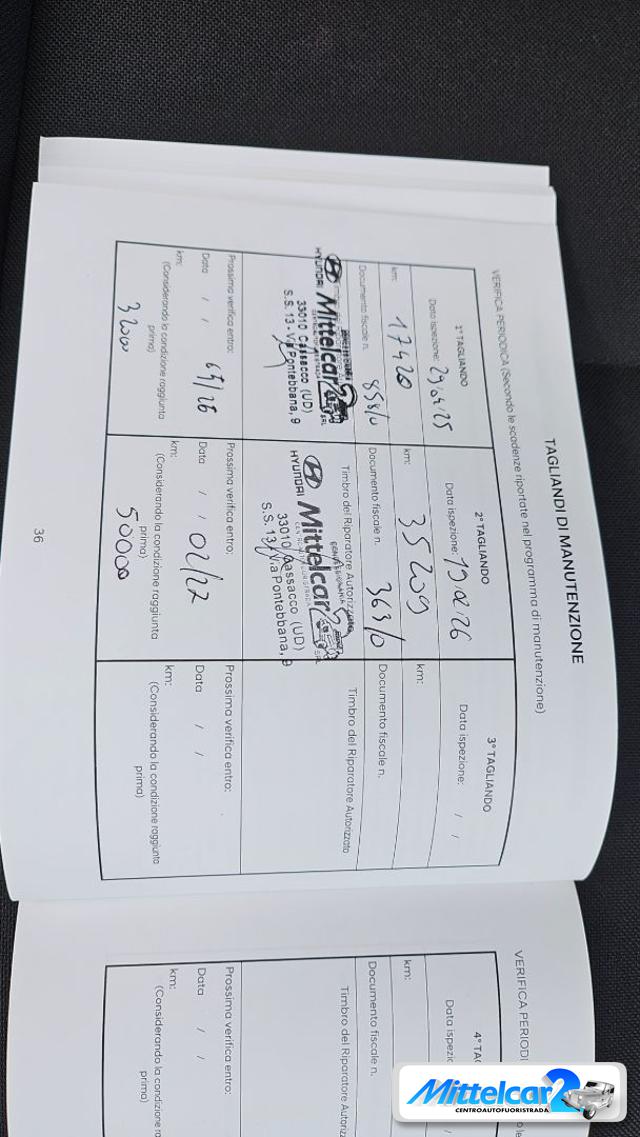 TAGLIANDI DI MANUTENZIONE
VERIFICA PERIODICA (Secondo le scadenze riportate nel programma di manutenzione)
1° TAGLIANDO
Data ispezione: 29/04/25
km:
17420
Documento fiscale n.
858/0
HYUNDAI Mittelcar2 SRL
33010 Cassacco (UD)
S.S. 13 - Via Pontebbana, 9
Prossima verifica entro:
Data / / 04/26
km:
(Considerando la condizione raggiunta
prima)
32000
2° TAGLIANDO
Data ispezione: 19 02 26
km:
35209
Documento fiscale n.
363/0
Timbro del Riparatore Autorizzato
CONCESSIONARIA
HYUNDAI Mittelcar2 SRL
CENTROAUTOFUORISTRADA
33010 Cassacco (UD)
S.S. 13 Via Pontebbana, 9
Prossima verifica entro:
Data / / 02/27
km:
(Considerando la condizione raggiunta
prima)
50000
3° TAGLIANDO
Data ispezione: / /
km:
Documento fiscale n.
Timbro del Riparatore Autorizzato
Prossima verifica entro:
Data / /
km:
(Considerando la condizione raggiunta
prima)
36
VERIFICA PERIODI
4° TAG
Data ispezi
km:
Documento fiscale n.
Timbro del Riparatore Autoriz
Prossima verifica entro:
Data / /
km:
(Considerando la condizione ra
prima)
Mittelcar2
CENTROAUTOFUORISTRADA